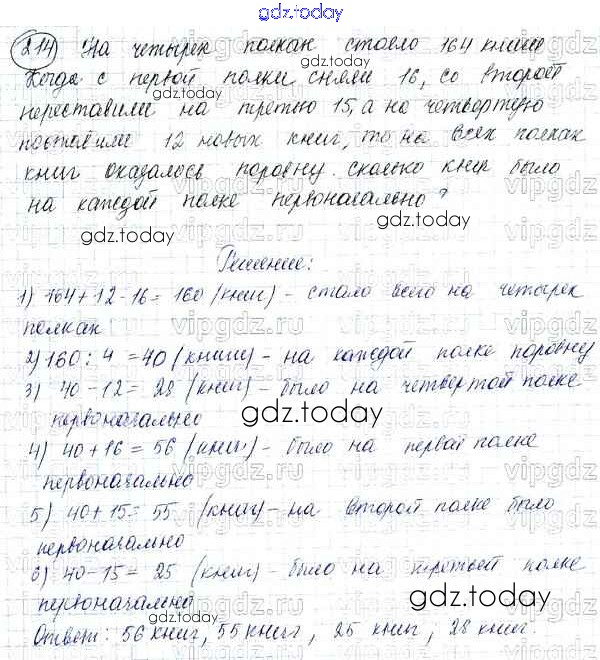 gdz.today
214) На четырех полках стояло 164 книги
gdz.today
Когда с первой полки сняли 16, со второй
переставили на третью 15, а на четвертую
поставили 12 новых книг, то на всех полках
книг оказалось поровну. Сколько книг было
на каждой полке первоначально?
gdz.today
Решение:
1) 164+12-16=160 (книг) - стало всего на четырех
полках
2) 160:4=40 (книги) - на каждой полке поровну
3) 40-12=28 (книг) - было на четвертой полке
первоначально
gdz.today
4) 40+16=56 (книг) - было на первой полке
первоначально
5) 40+15=55 (книг) - на второй полке было
первоначально
6) 40-15=25 (книг) - было на третьей полке
первоначально
gdz.today
Ответ: 56 книг, 55 книг, 25 книг, 28 книг.